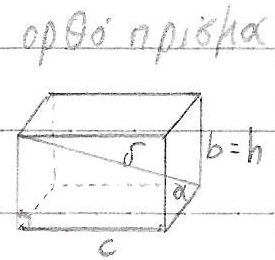 ορθό πρίσμα
δ
b=h
α
c